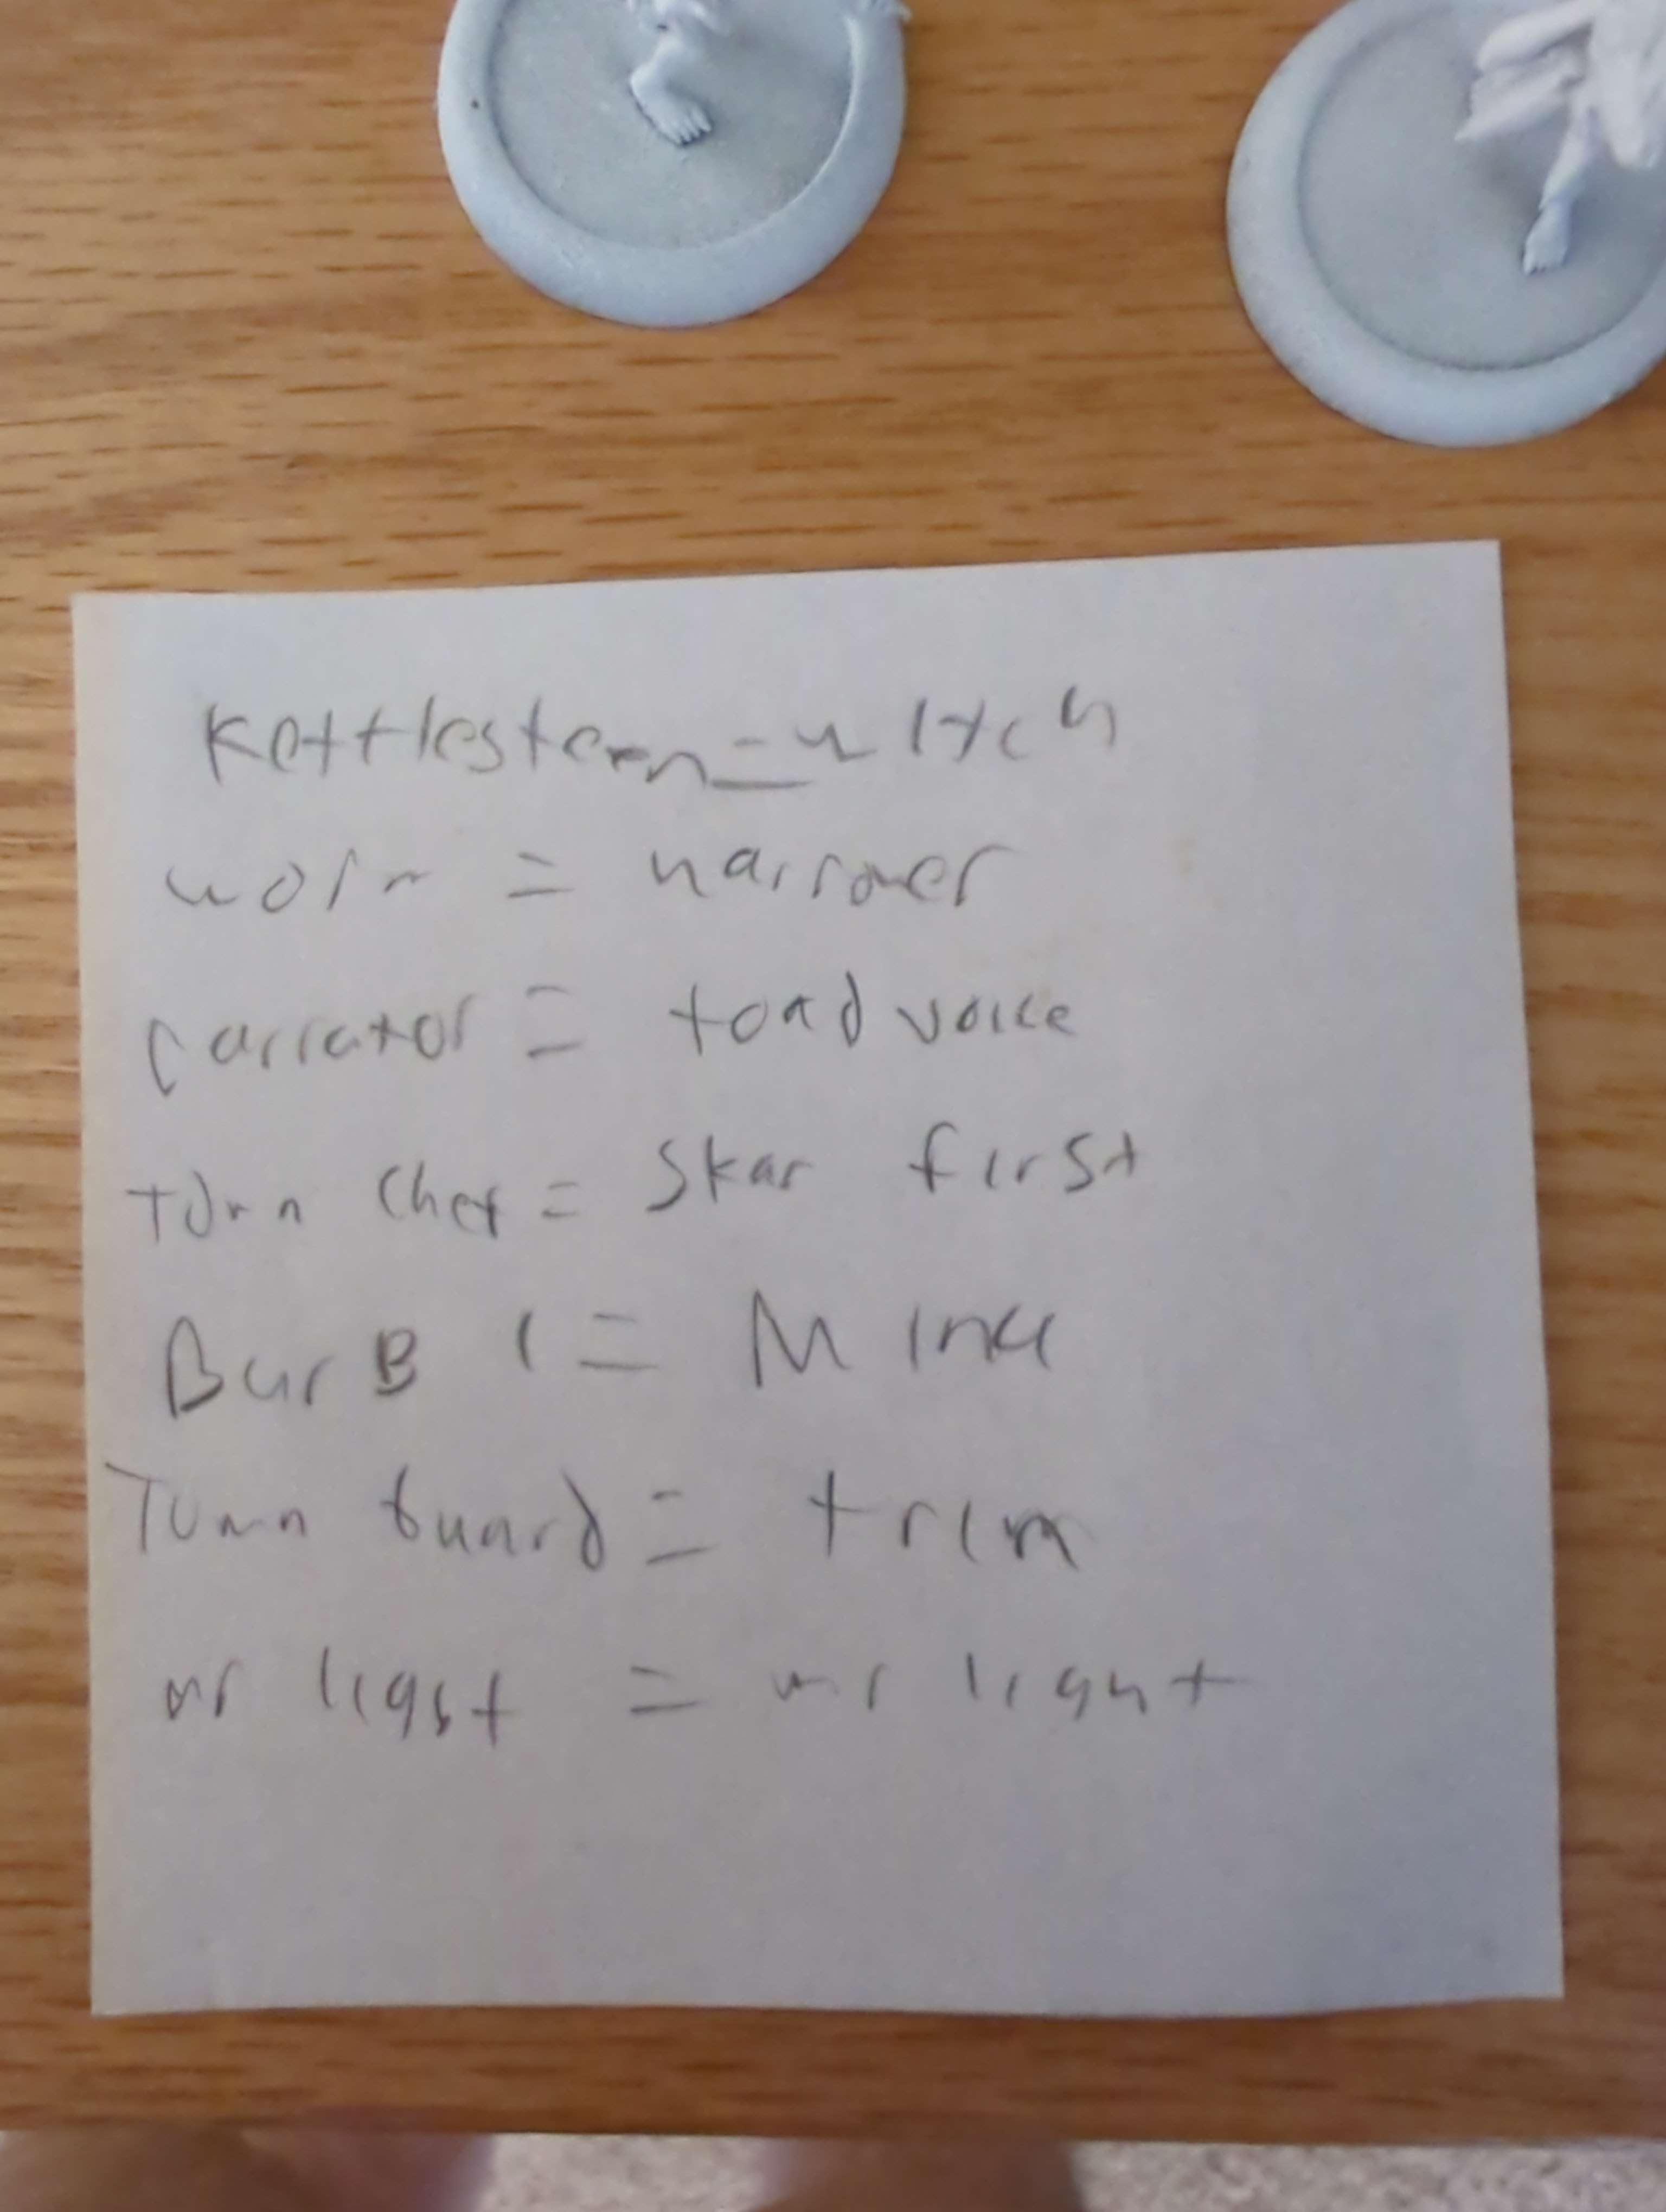 Kettlestern = witch
worm = narrower
parrator = toad voice
town Chef = Skar first
BurB 1 = M
Town Guard = trim
mr light = mr light